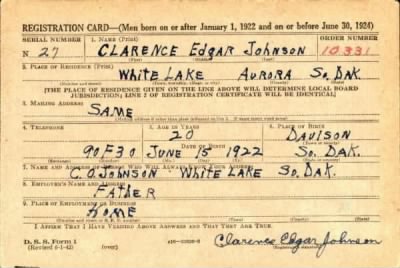 REGISTRATION CARD—(Men born on or after January 1, 1922 and on or before June 30, 1924)
SERIAL NUMBER 1. NAME (Print) ORDER NUMBER
N 27 CLARENCE Edgar JOHNSON 10331
(First) (Middle) (Last)
2. PLACE OF RESIDENCE (Print)
WHITE LAKE AURORA So. DAK.
(State)
[THE PLACE OF RESIDENCE GIVEN ON THE LINE ABOVE WILL DETERMINE LOCAL BOARD
JURISDICTION; LINE 2 OF REGISTRATION CERTIFICATE WILL BE IDENTICAL]
3. MAILING ADDRESS
SAME
4. TELEPHONE 5. AGE IN YEARS 6. PLACE OF BIRTH
20 DAVISON
DATE OF BIRTH
90F30 JUNE 15 1922 So. DAK.
7. NAME AND ADDRESS OF PERSON WHO WILL ALWAYS KNOW YOUR ADDRESS
C.O. JOHNSON WHITE LAKE So. DAK.
8. EMPLOYER'S NAME AND ADDRESS
FATHER
9. PLACE OF EMPLOYMENT OR BUSINESS
HOME
I AFFIRM THAT I HAVE VERIFIED ABOVE ANSWERS AND THAT THEY ARE TRUE.
D. S. S. Form 1
(Revised 6-1-42) (over)
Clarence Edgar Johnson